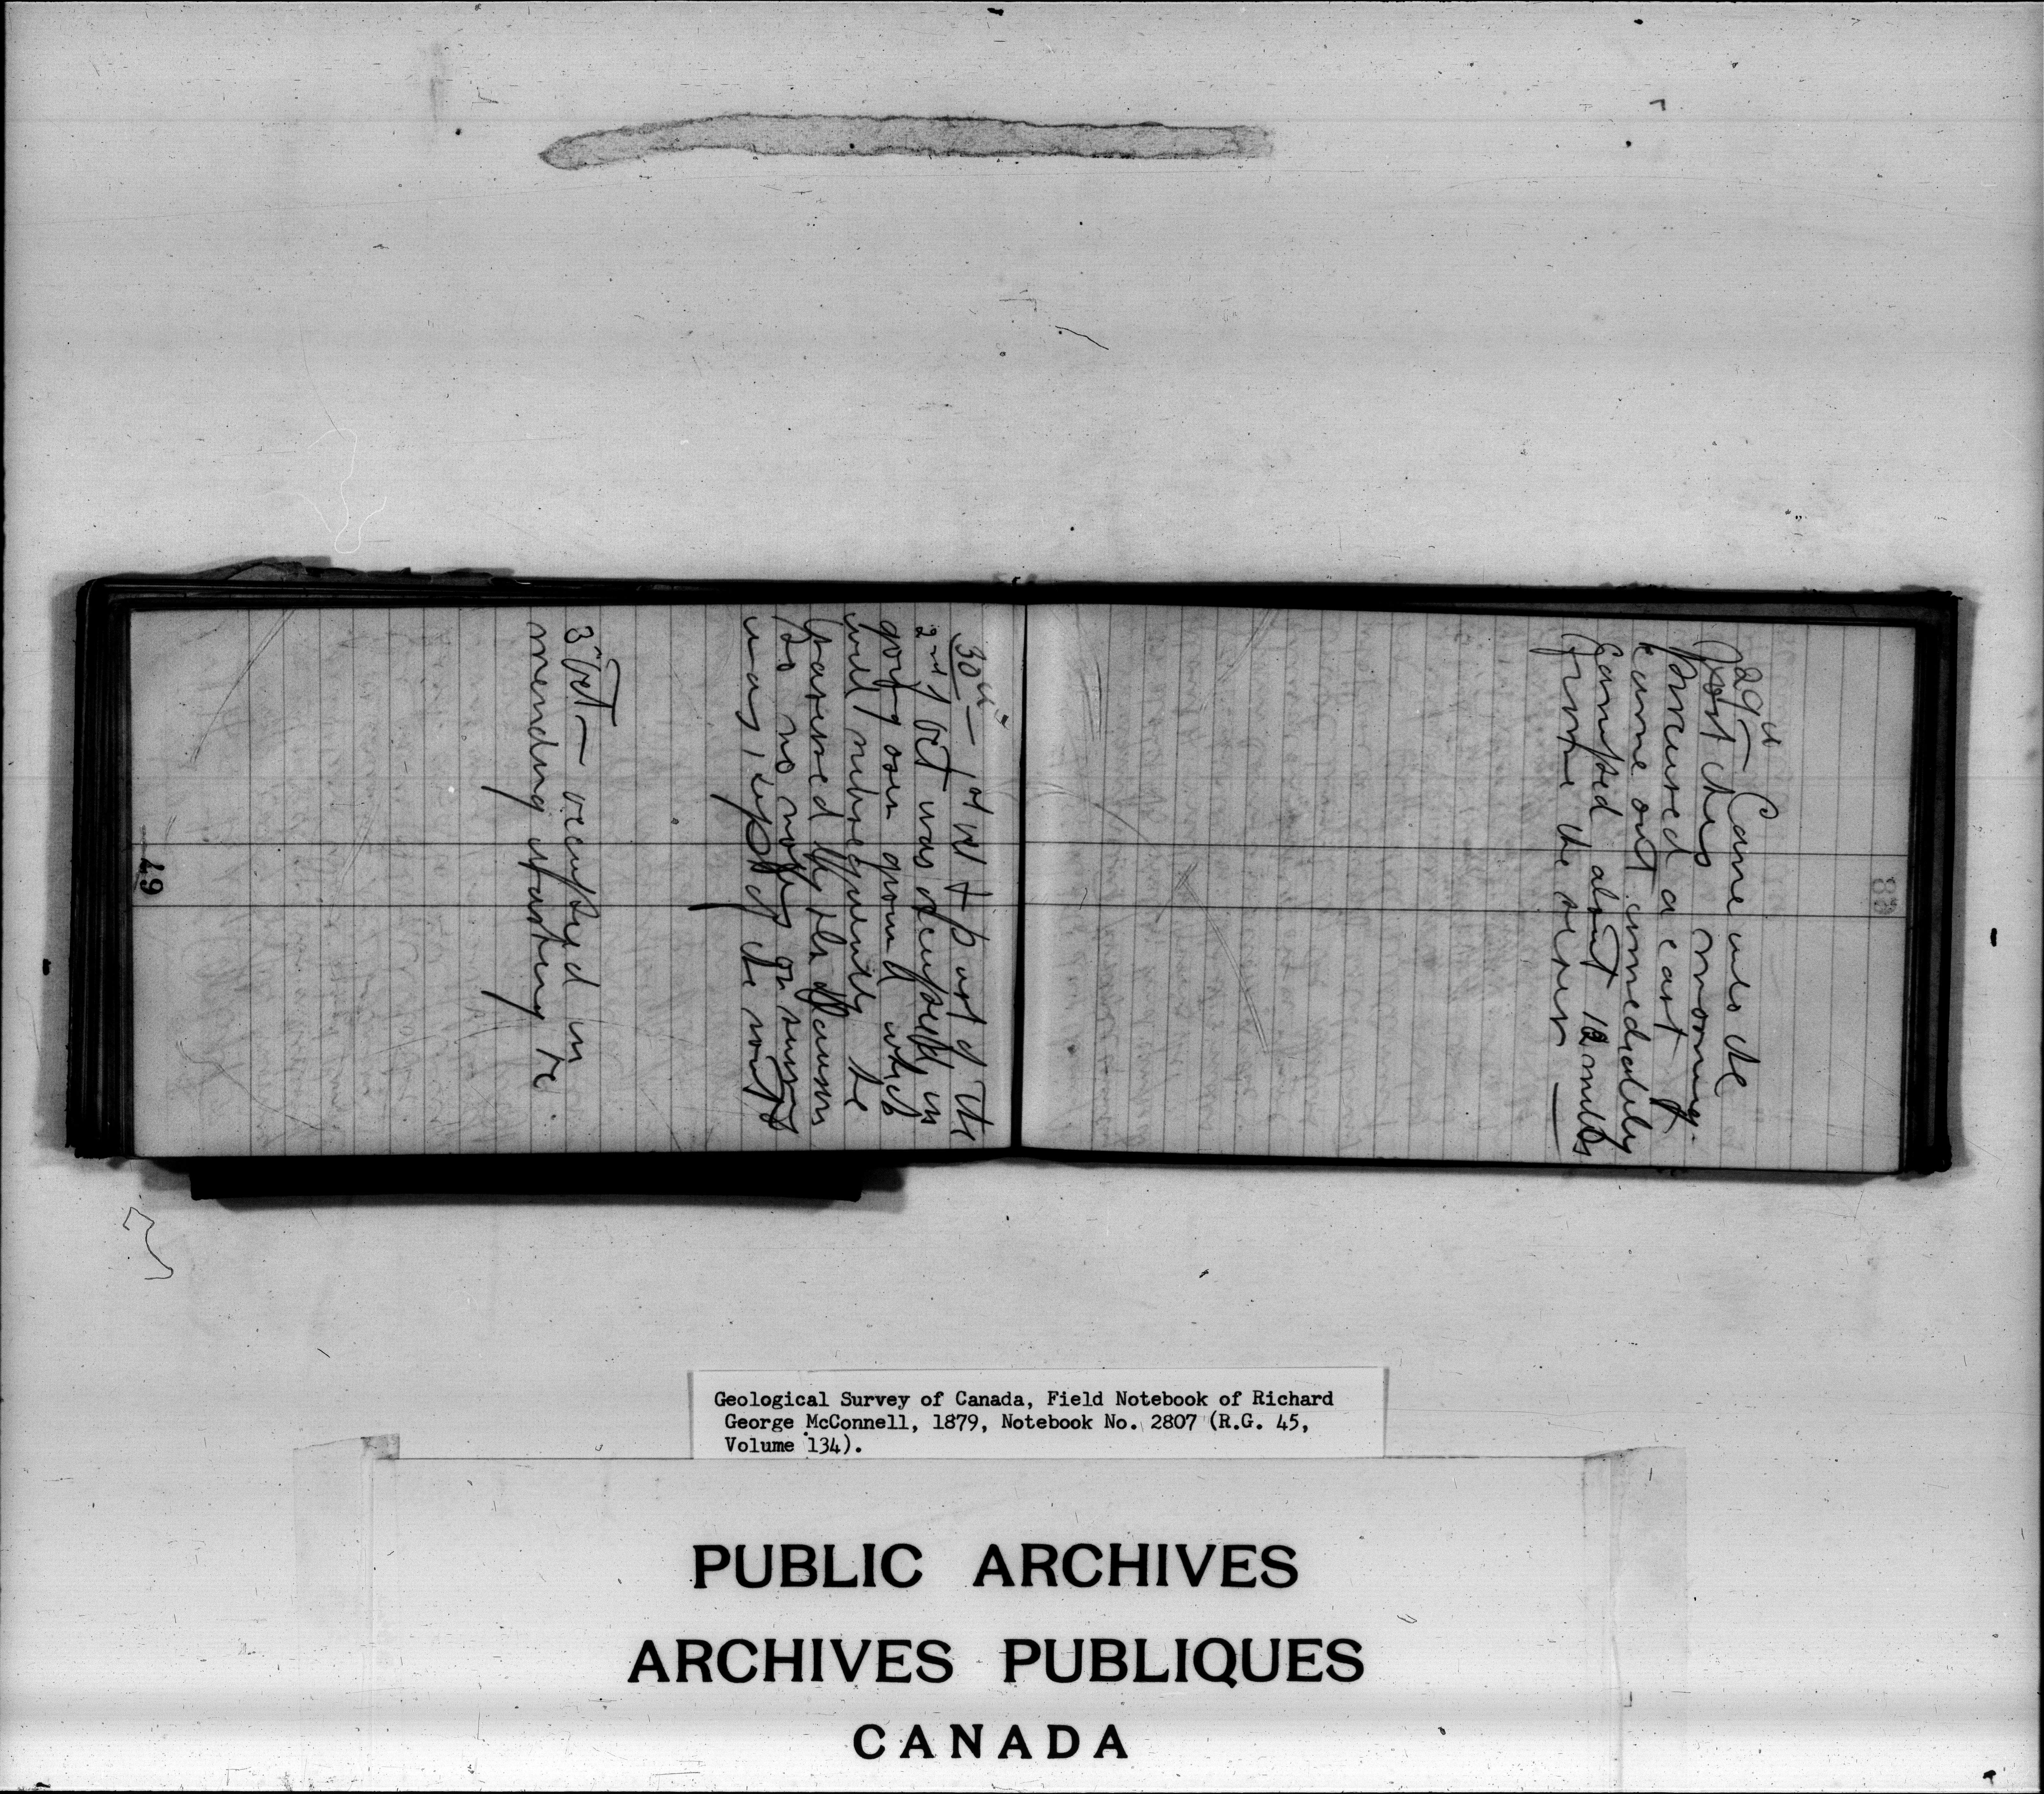 29th Came into the
post this morning.
procured a cart
came out immediately
camped about 12 miles
from the river —
30th — 1st Oct & part of the
2nd Oct was occupied in
going over ground which
will subsequently be
traversed by the
so no notes or survey
was kept of the route
3 Oct — occupied in
mending carting &c
49
Geological Survey of Canada, Field Notebook of Richard
George McConnell, 1879, Notebook No. 2807 (R.G. 45,
Volume 134).
PUBLIC ARCHIVES
ARCHIVES PUBLIQUES
CANADA